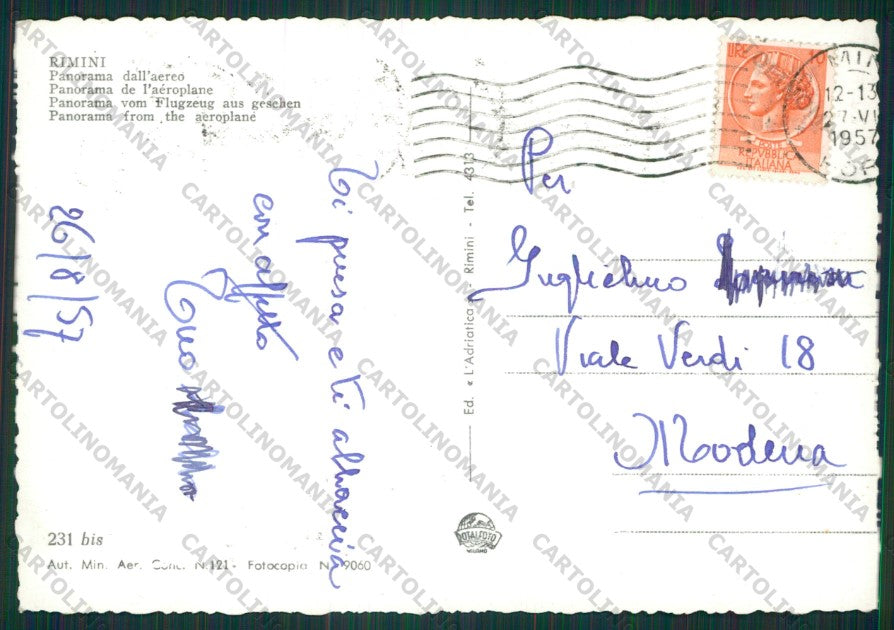 RIMINI
Panorama dall'aereo
Panorama de l'aéroplane
Panorama vom Flugzeug aus gesehen
Panorama from the aeroplane
26/8/57
Ti pensa e ti abbraccia
con affetto
Tuo
231 bis
Aut. Min. Aer. Conc. N.121 - Fotocopia N. 9060
Ed. « L'Adriatica » - Rimini - Tel. 4313
LIRE 10
REPVBBLICA
ITALIANA
12-13
1957
Per
Guglielmo
Viale Verdi 18
Modena
TOTALFOTO
MILANO
CARTOLINOMANIA